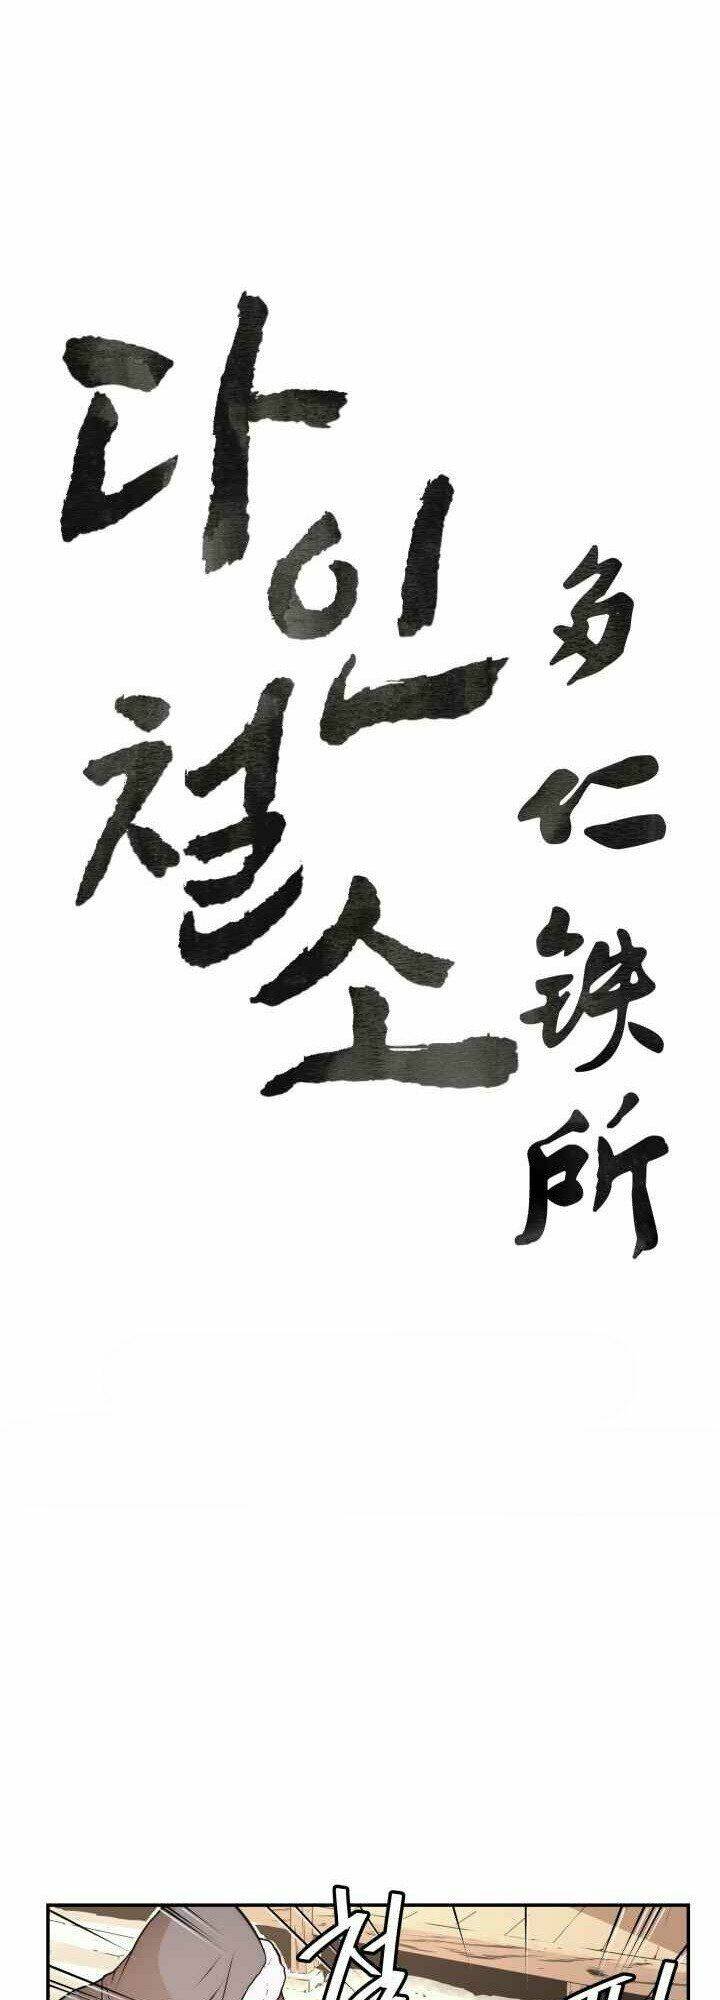 다인
철소
多仁铁所
철